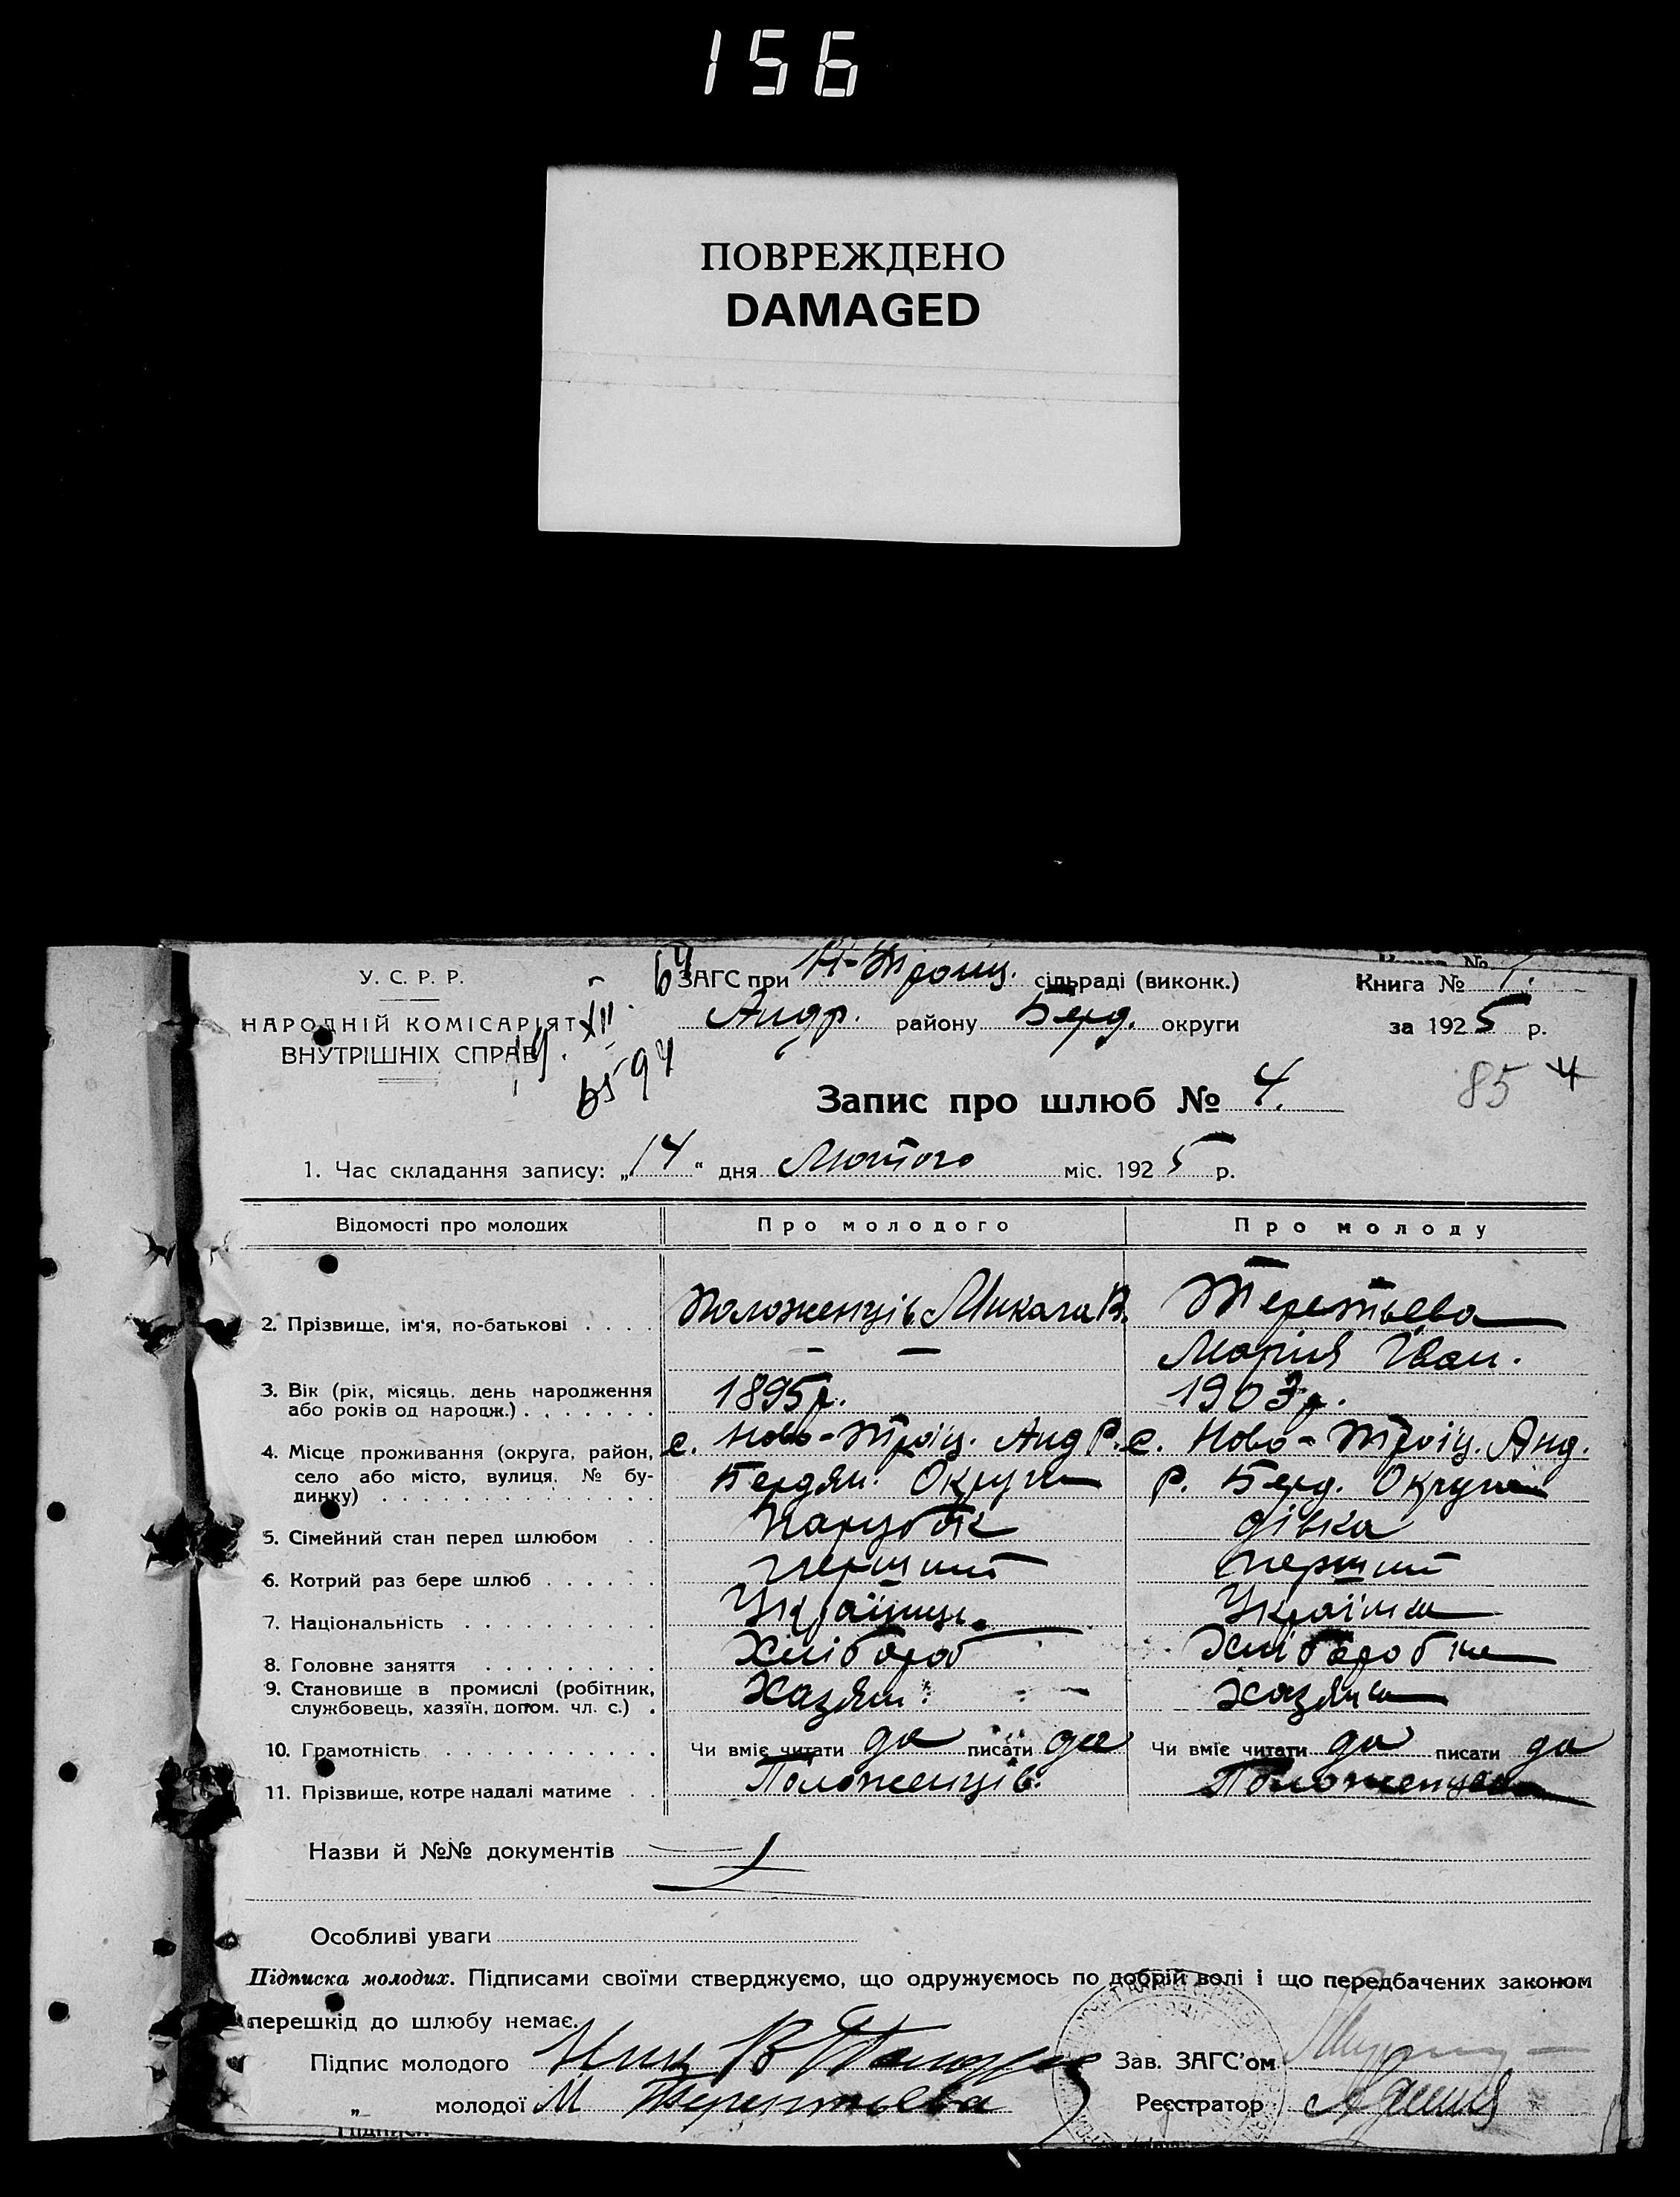 156
ПОВРЕЖДЕНО
DAMAGED
У. С. Р. Р.
ЗАГС при Н-Троиц. сільраді (виконк.)
Книга № 1.
НАРОДНІЙ КОМІСАРІЯТ
ВНУТРІШНІХ СПРАВ
Андр. району Берд. округи
за 1925 р.
Запис про шлюб № 4.
85 4
1. Час складання запису: „14“ дня Лютого міс. 1925 р.
Відомості про молодих Про молодого Про молоду
2. Прізвище, ім'я, по-батькові . . . . Положенців Микала В. Терентьева
Мария Иван.
3. Вік (рік, місяць. день народження
або років од народж.) . . . . . . . 1895р. 1903р.
4. Місце проживання (округа, район, с. Ново-Троіц. Анд Р. с. Ново-Троіц. Анд.
село або місто, вулиця, № бу-
динку) . . . . . . . . . . . . . . Бердян. Округи Р. Берд. Округи
5. Сімейний стан перед шлюбом . . Парубок дівка
6. Котрий раз бере шлюб . . . . . . перший перший
7. Національність . . . . . . . . . . Українць. Українка
8. Головне заняття . . . . . . . . . Хлібороб Хлібороб
9. Становище в промислі (робітник,
службовець, хазяїн, допом. чл. с.) . Хазяин
10. Грамотність . . . . . . . . . . . Чи вміє читати да писати да Чи вміє читати да писати да
11. Прізвище, котре надалі матиме . . Положенців. Положенцева
Назви й №№ документів
Особливі уваги
Підписка молодих. Підписами своїми стверджуємо, що одружуємось по добрій волі і що передбачених законом
перешкід до шлюбу немає.
Підпис молодого
Зав. ЗАГС'ом
„ молодої М Терентьева
Реєстратор